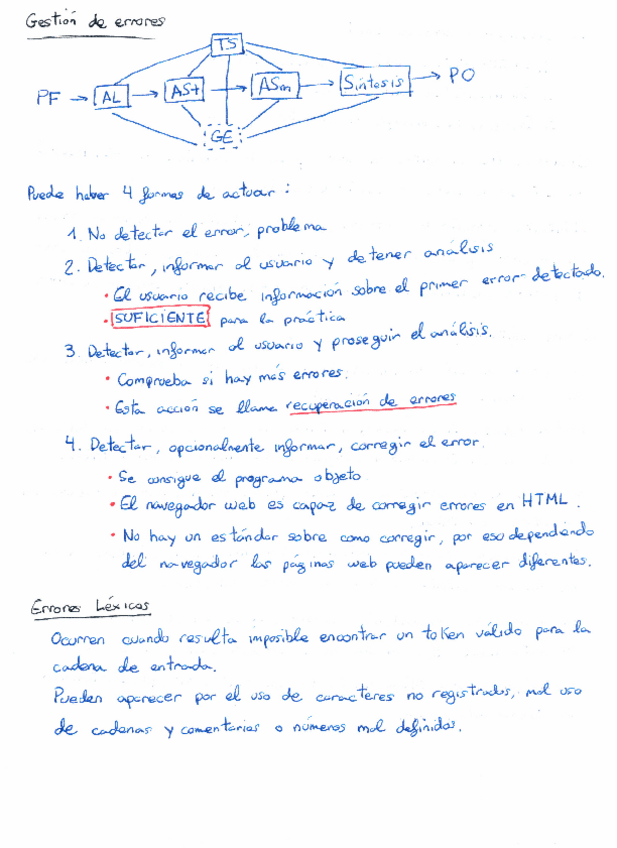 Gestión de errores
TS
PF → AL → ASt → ASm → Síntesis → PO
GE
Puede haber 4 formas de actuar:
1. No detectar el error, problema
2. Detectar, informar al usuario y detener análisis
• El usuario recibe información sobre el primer error detectado.
• SUFICIENTE para la práctica
3. Detectar, informar al usuario y proseguir el análisis.
• Comprueba si hay más errores.
• Esta acción se llama recuperación de errores
4. Detectar, opcionalmente informar, corregir el error.
• Se consigue el programa objeto
• El navegador web es capaz de corregir errores en HTML.
• No hay un estándar sobre como corregir, por eso dependiendo
del navegador las páginas web pueden aparecer diferentes.
Errores Léxicos
Ocurren cuando resulta imposible encontrar un token válido para la
cadena de entrada.
Pueden aparecer por el uso de caracteres no registrados, mal uso
de cadenas y comentarios o números mal definidos.